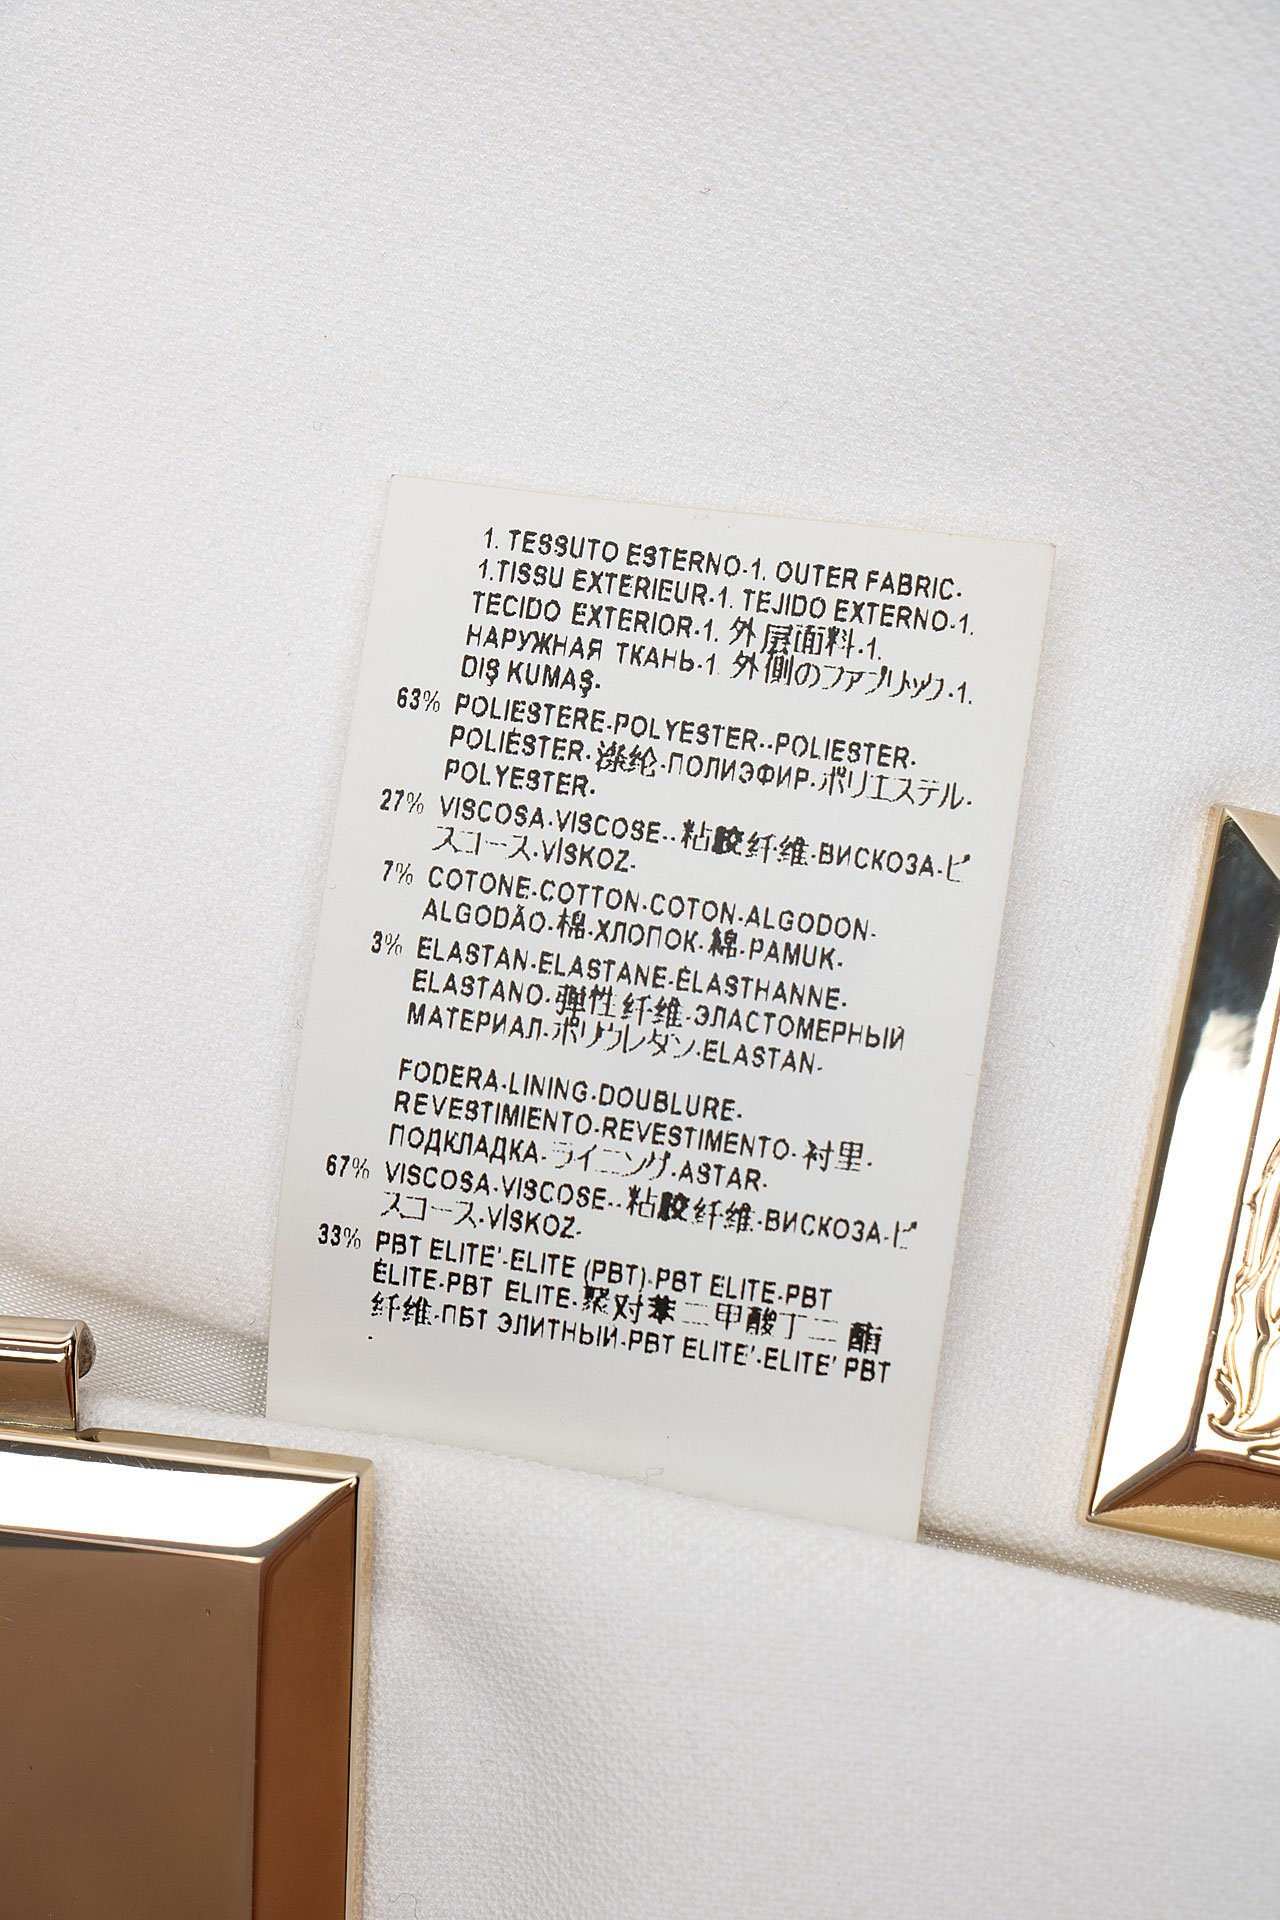 1. TESSUTO ESTERNO-1. OUTER FABRIC-
1.TISSU EXTERIEUR-1. TEJIDO EXTERNO-1.
TECIDO EXTERIOR-1. 外层面料-1.
НАРУЖНАЯ ТКАНЬ-1. 外側のファブリック-1.
DIŞ KUMAŞ-
63% POLIESTERE-POLYESTER--POLIESTER-
POLIÉSTER-涤纶-ПОЛИЭФИР-ポリエステル-
POLYESTER-
27% VISCOSA-VISCOSE--粘胶纤维-ВИСКОЗА-ビ
スコース-VİSKOZ-
7% COTONE-COTTON-COTON-ALGODON-
ALGODÃO-棉-ХЛОПОК-綿-PAMUK-
3% ELASTAN-ELASTANE-ÉLASTHANNE-
ELASTANO-弹性纤维-ЭЛАСТОМЕРНЫЙ
МАТЕРИАЛ-ポリウレタン-ELASTAN-
FODERA-LINING-DOUBLURE-
REVESTIMIENTO-REVESTIMENTO-衬里-
ПОДКЛАДКА-ライニング-ASTAR-
67% VISCOSA-VISCOSE--粘胶纤维-ВИСКОЗА-ビ
スコース-VİSKOZ-
33% PBT ELITE'-ELITE (PBT)-PBT ELITE-PBT
ÉLITE-PBT ELITE-聚对苯二甲酸丁二酯
纤维-ПБТ ЭЛИТНЫЙ-PBT ELITE'-ELITE' PBT
-